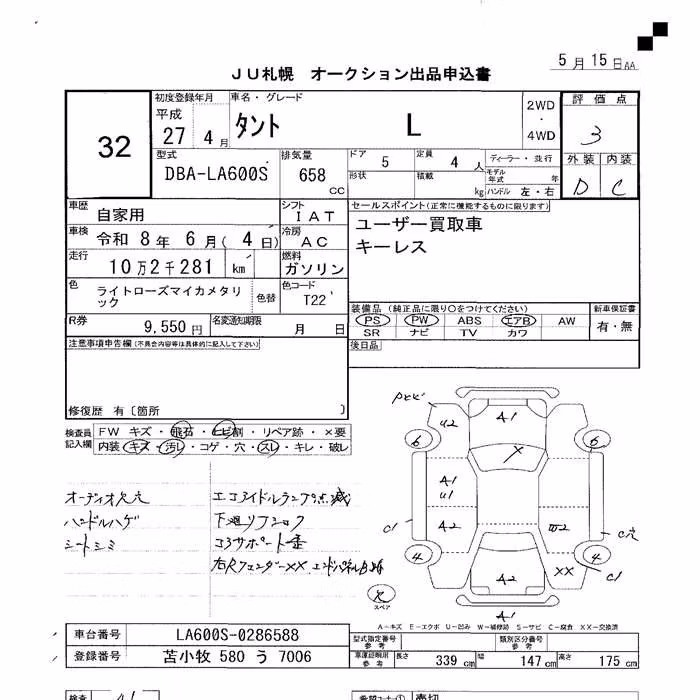 5月15日AA
JU札幌 オークション出品申込書
32
初度登録年月 平成 27 4月
車名・グレード タント L
2WD・4WD
評価点 3
外装 D 内装 C
型式 DBA-LA600S
排気量 658 CC
ドア 5
定員 4人
ディーラー・並行
形状
積載 kg
モデル年式 年
ハンドル 左・右
車歴 自家用
シフト IAT
セールスポイント(正常に機能するものに限ります)
ユーザー買取車
キーレス
車検 令和 8年 6月( 4日)
冷房 AC
走行 10万2千281 km
燃料 ガソリン
色 ライトローズマイカメタリック
色替
色コード T22
装備品 (純正品に限り○をつけてください)
PS PW ABS エアB AW
SR ナビ TV カワ
新車保証書 有・無
R券 9,550円
名変通知期限 月 日
後日品
注意事項申告欄(不具合内容等は具体的に記入して下さい)
修復歴 有〔箇所 〕
検査員記入欄
FW キズ・飛石・ヒビ割・リペア跡・×要
内装・キズ・汚レ・コゲ・穴・スレ・キレ・破レ
オーディオ欠品
ハンドルハゲ
シートシミ
エコアイドルランプ点滅
下廻りフシロク
コアサポート歪
右Rフェンダーxx、エンドパネル
U2
A1
6
6
A1
U1
A2
C1
4
4
C1
C穴
XX
A2
A1
スペア
A-キズ E-エクボ U-凹み W-補修跡 S-サビ C-腐食 XX-交換済
車台番号 LA600S-0286588
登録番号 苫小牧 580 う 7006
型式指定番号 参考
類別区分番号 参考
車庫証明用 参考
長さ 339 cm
幅 147 cm
高さ 175 cm
検査
希望コーナー①
売切